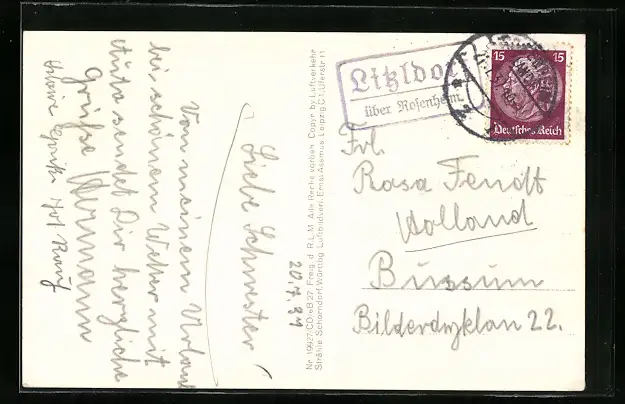 20.7.34
Liebe Schwester!
Von meinem Urlaub
bei schönem Wetter mit
Auto sendet Dir herzliche
Grüße Hermann
Nr. 19927/CD/eB 27. Freig. d. R.L.M. Alle Rechte vorbeh. Copyr. by Luftverkehr
Strähle Schorndorf Württbg. Luftbildverl. Ernst Assmus Leipzig C1 Uferstr. 11
Litzldorf
über Rosenheim
15 15
Deutsches Reich
Frl.
Rosa Fendt
Holland
Bussum
Bilderdyklan 22.